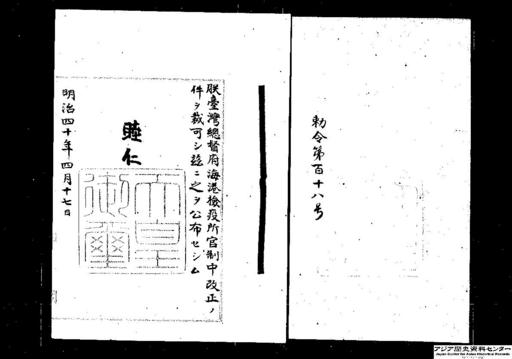 勅令第百十八号
朕臺灣總督府海港檢疫所官制中改正ノ
件ヲ裁可シ茲ニ之ヲ公布セシム
睦仁
天皇
御璽
明治四十年四月十七日
アジア歴史資料センター
Japan Center for Asian Historical Records